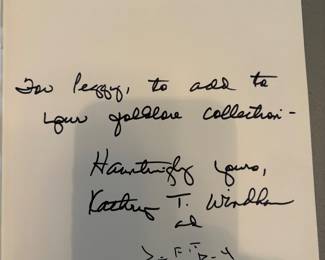 For Peggy, to add to
your folklore collection -
Hauntingly yours,
Kathryn T. Windham